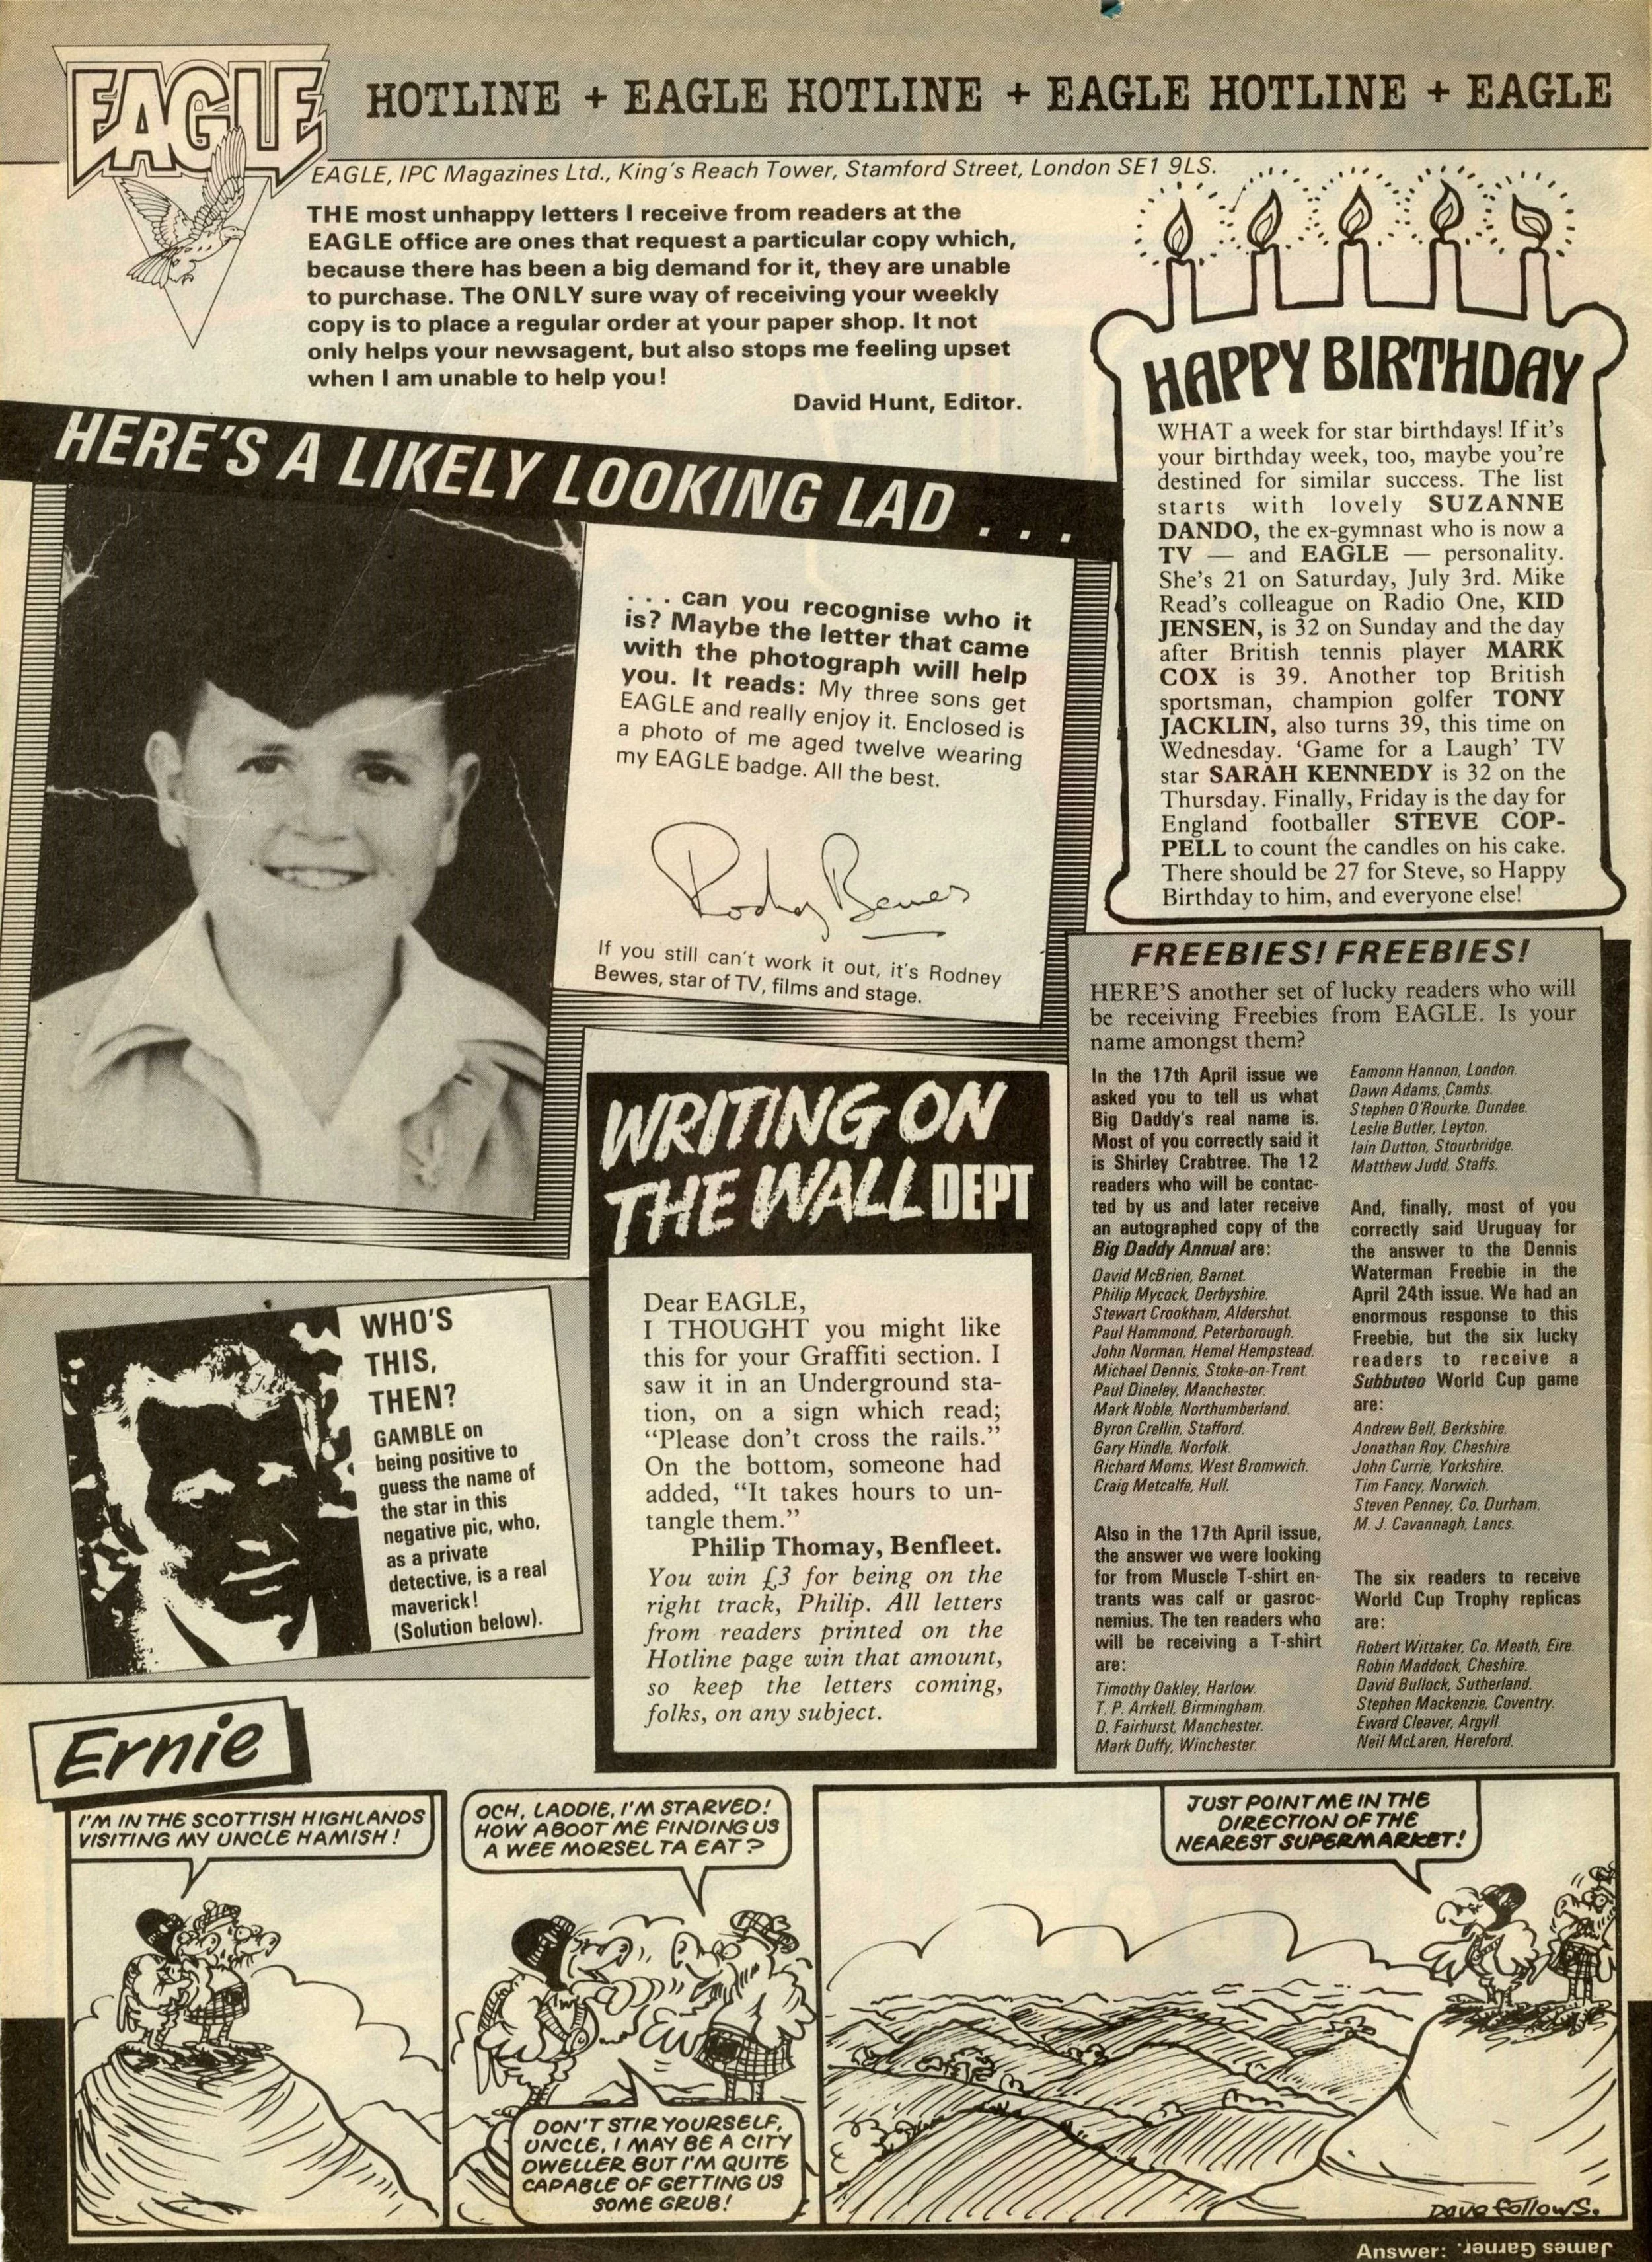 EAGLE
HOTLINE + EAGLE HOTLINE + EAGLE HOTLINE + EAGLE
EAGLE, IPC Magazines Ltd., King's Reach Tower, Stamford Street, London SE1 9LS.
THE most unhappy letters I receive from readers at the
EAGLE office are ones that request a particular copy which,
because there has been a big demand for it, they are unable
to purchase. The ONLY sure way of receiving your weekly
copy is to place a regular order at your paper shop. It not
only helps your newsagent, but also stops me feeling upset
when I am unable to help you!
David Hunt, Editor.
HAPPY BIRTHDAY
WHAT a week for star birthdays! If it's
your birthday week, too, maybe you're
destined for similar success. The list
starts with lovely SUZANNE
DANDO, the ex-gymnast who is now a
TV — and EAGLE — personality.
She's 21 on Saturday, July 3rd. Mike
Read's colleague on Radio One, KID
JENSEN, is 32 on Sunday and the day
after British tennis player MARK
COX is 39. Another top British
sportsman, champion golfer TONY
JACKLIN, also turns 39, this time on
Wednesday. 'Game for a Laugh' TV
star SARAH KENNEDY is 32 on the
Thursday. Finally, Friday is the day for
England footballer STEVE COP-
PELL to count the candles on his cake.
There should be 27 for Steve, so Happy
Birthday to him, and everyone else!
HERE'S A LIKELY LOOKING LAD . . .
. . . can you recognise who it
is? Maybe the letter that came
with the photograph will help
you. It reads: My three sons get
EAGLE and really enjoy it. Enclosed is
a photo of me aged twelve wearing
my EAGLE badge. All the best.
Rodney Bewes
If you still can't work it out, it's Rodney
Bewes, star of TV, films and stage.
FREEBIES! FREEBIES!
HERE'S another set of lucky readers who will
be receiving Freebies from EAGLE. Is your
name amongst them?
In the 17th April issue we
asked you to tell us what
Big Daddy's real name is.
Most of you correctly said it
is Shirley Crabtree. The 12
readers who will be contac-
ted by us and later receive
an autographed copy of the
Big Daddy Annual are:
David McBrien, Barnet.
Philip Mycock, Derbyshire.
Stewart Crookham, Aldershot.
Paul Hammond, Peterborough.
John Norman, Hemel Hempstead.
Michael Dennis, Stoke-on-Trent.
Paul Dineley, Manchester.
Mark Noble, Northumberland.
Byron Crellin, Stafford.
Gary Hindle, Norfolk.
Richard Moms, West Bromwich.
Craig Metcalfe, Hull.
Also in the 17th April issue,
the answer we were looking
for from Muscle T-shirt en-
trants was calf or gasroc-
nemius. The ten readers who
will be receiving a T-shirt
are:
Timothy Oakley, Harlow.
T. P. Arrkell, Birmingham.
D. Fairhurst, Manchester.
Mark Duffy, Winchester.
Eamonn Hannon, London.
Dawn Adams, Cambs.
Stephen O'Rourke, Dundee.
Leslie Butler, Leyton.
Iain Dutton, Stourbridge.
Matthew Judd, Staffs.
And, finally, most of you
correctly said Uruguay for
the answer to the Dennis
Waterman Freebie in the
April 24th issue. We had an
enormous response to this
Freebie, but the six lucky
readers to receive a
Subbuteo World Cup game
are:
Andrew Bell, Berkshire.
Jonathan Roy, Cheshire.
John Currie, Yorkshire.
Tim Fancy, Norwich.
Steven Penney, Co. Durham.
M. J. Cavannagh, Lancs.
The six readers to receive
World Cup Trophy replicas
are:
Robert Wittaker, Co. Meath, Eire.
Robin Maddock, Cheshire.
David Bullock, Sutherland.
Stephen Mackenzie, Coventry.
Eward Cleaver, Argyll.
Neil McLaren, Hereford.
WRITING ON
THE WALL DEPT
Dear EAGLE,
I THOUGHT you might like
this for your Graffiti section. I
saw it in an Underground sta-
tion, on a sign which read;
“Please don't cross the rails.”
On the bottom, someone had
added, “It takes hours to un-
tangle them.”
Philip Thomay, Benfleet.
You win £3 for being on the
right track, Philip. All letters
from readers printed on the
Hotline page win that amount,
so keep the letters coming,
folks, on any subject.
WHO'S
THIS,
THEN?
GAMBLE on
being positive to
guess the name of
the star in this
negative pic, who,
as a private
detective, is a real
maverick!
(Solution below).
Ernie
I'M IN THE SCOTTISH HIGHLANDS
VISITING MY UNCLE HAMISH!
OCH, LADDIE, I'M STARVED!
HOW ABOOT ME FINDING US
A WEE MORSEL TA EAT?
DON'T STIR YOURSELF,
UNCLE, I MAY BE A CITY
DWELLER BUT I'M QUITE
CAPABLE OF GETTING US
SOME GRUB!
JUST POINT ME IN THE
DIRECTION OF THE
NEAREST SUPERMARKET!
Dave Follows.
Answer: James Garner.